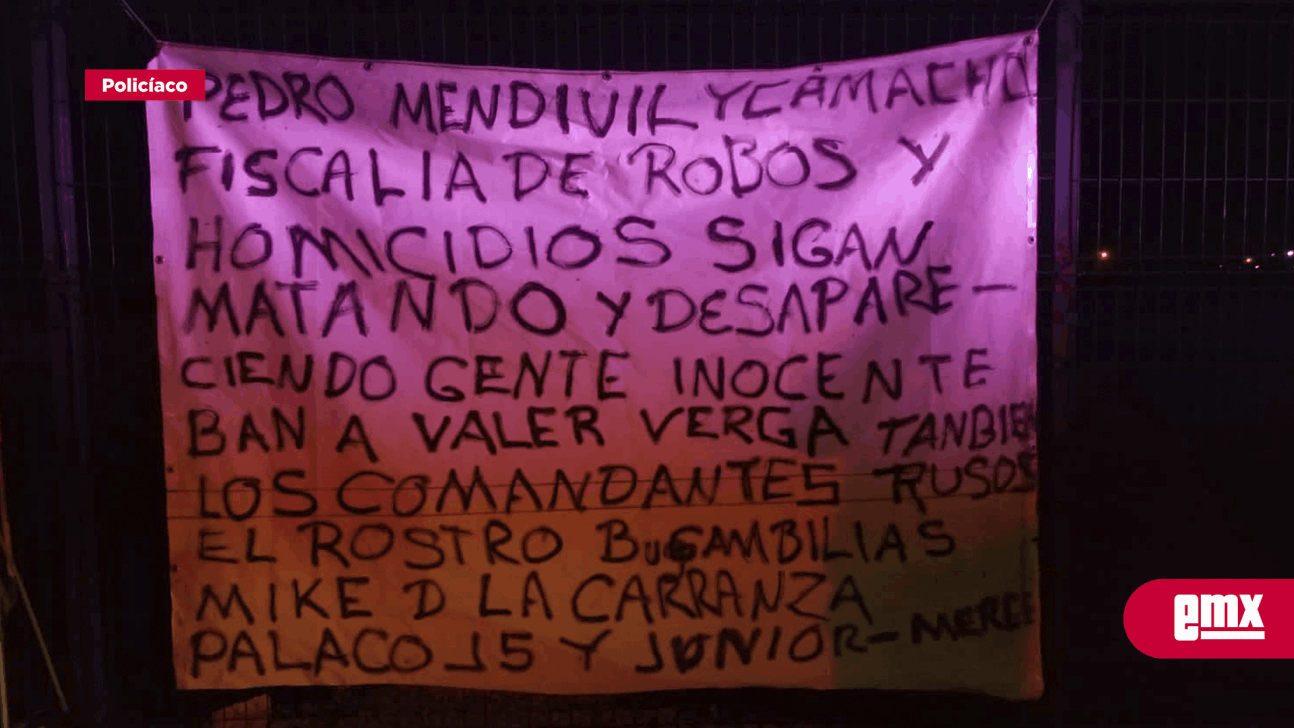 Policíaco
PEDRO MENDIVIL Y CAMACHO
FISCALIA DE ROBOS Y
HOMICIDIOS SIGAN
MATANDO Y DESAPARE-
CIENDO GENTE INOCENTE
BAN A VALER VERGA TANBIEN
LOS COMANDANTES RUSOS
EL ROSTRO BUGAMBILIAS
MIKE D LA CARRANZA
PALACO 15 Y JUNIOR-
emx